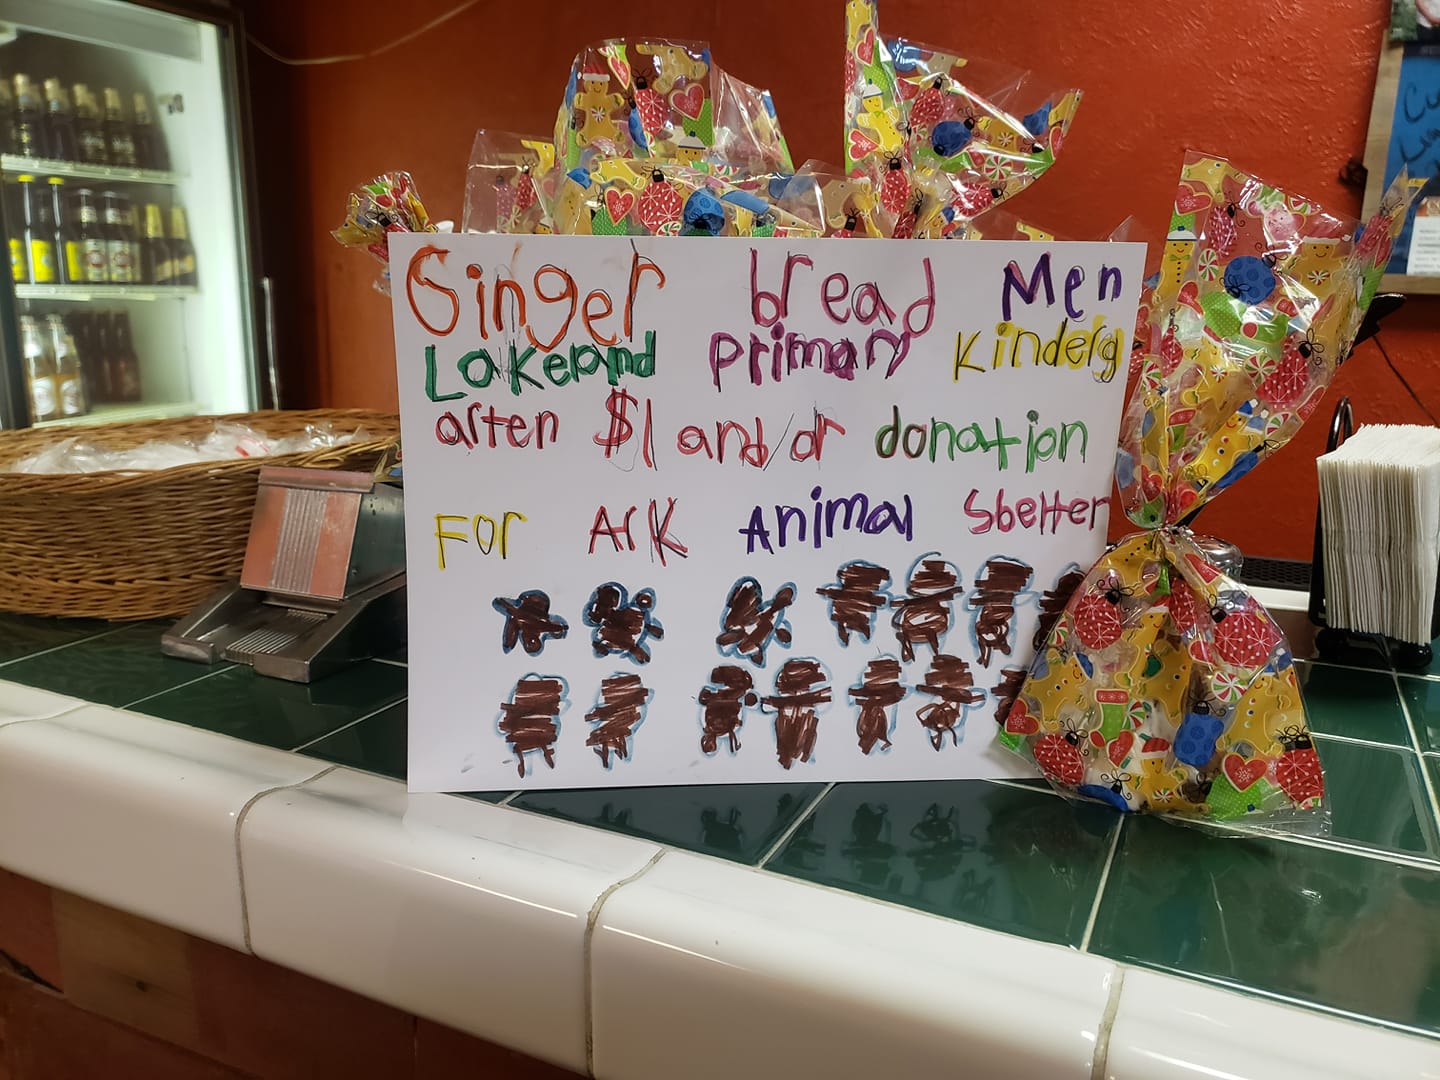 Ginger bread Men
Lakeland primary Kinderg
arten $1 and/or donation
For Ark Animal Sbelter